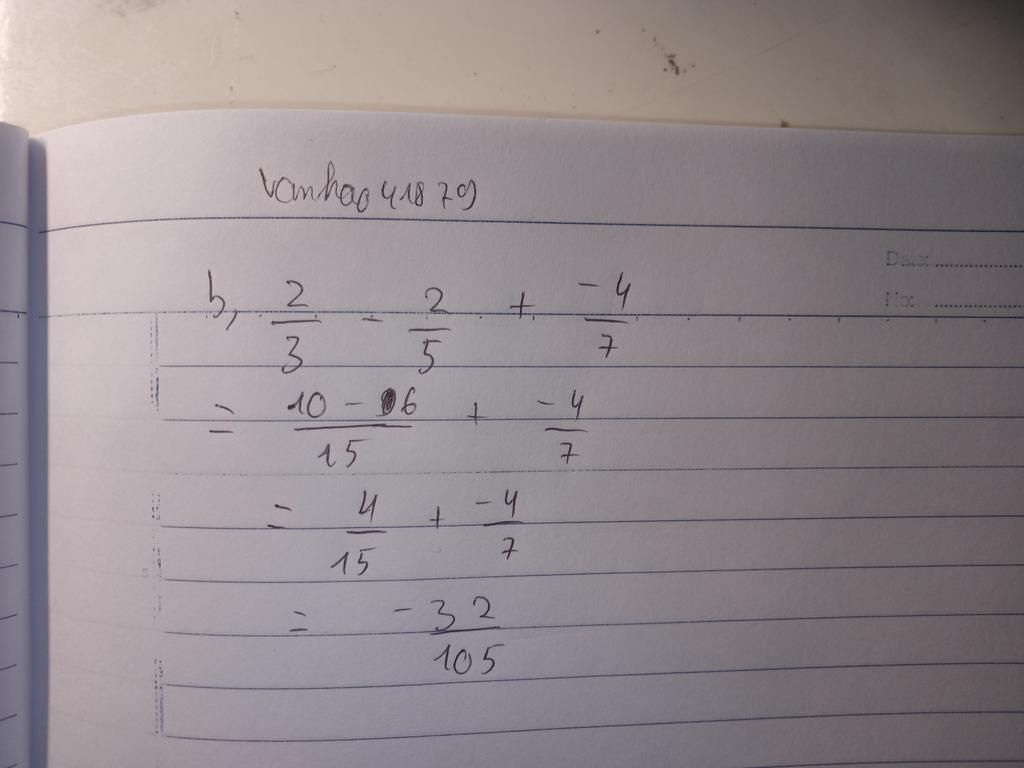 vanhao41879
Date:
No:
b, 2/3 - 2/5 + -4/7
= 10 - 6/15 + -4/7
= 4/15 + -4/7
= -32/105